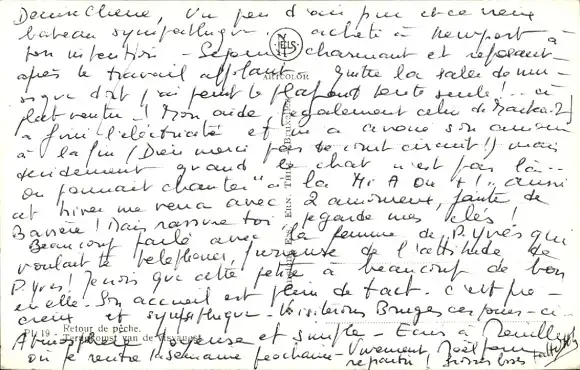 Denise Chérie, Un peu d'air pur et ce vieux
bateau sympathique acheté à Newport à
ton intention - Séjour charmant et reposant -
après le travail affolant quitte la salle de mu-
sique dont j'ai peint le plafond toute seule! .. à
plat ventre! Mon aide, également celui de
a fini l'électricité et m'a avoué son amour
à la fin (Dieu merci pas de court circuit!) mais
décidément quand le chat n'est pas là ..
on pourrait chanter à la .. ainsi
cet hiver me verra avec 2 amoureux, faute de
Barrère! Mais rassure toi, je garde mes clés!
Beaucoup parlé avec la femme de P. Yvès qui
voulait te téléphoner, furieuse de l'attitude de
P. Yvès! Je crois que cette petite a beaucoup de bon
en elle. Son accueil est plein de tact. c'est pré-
cieux et sympathique. Visiterons Bruges ces jours-ci.
Atmosphère joyeuse et simple - Écris à Neuilly
où je rentre la semaine prochaine - Vivement Noël pour
repartir! Grosses bises
P1/19 - Retour de pêche.
Terugkomst van de visvangst.
ARTICOLOR
NELS